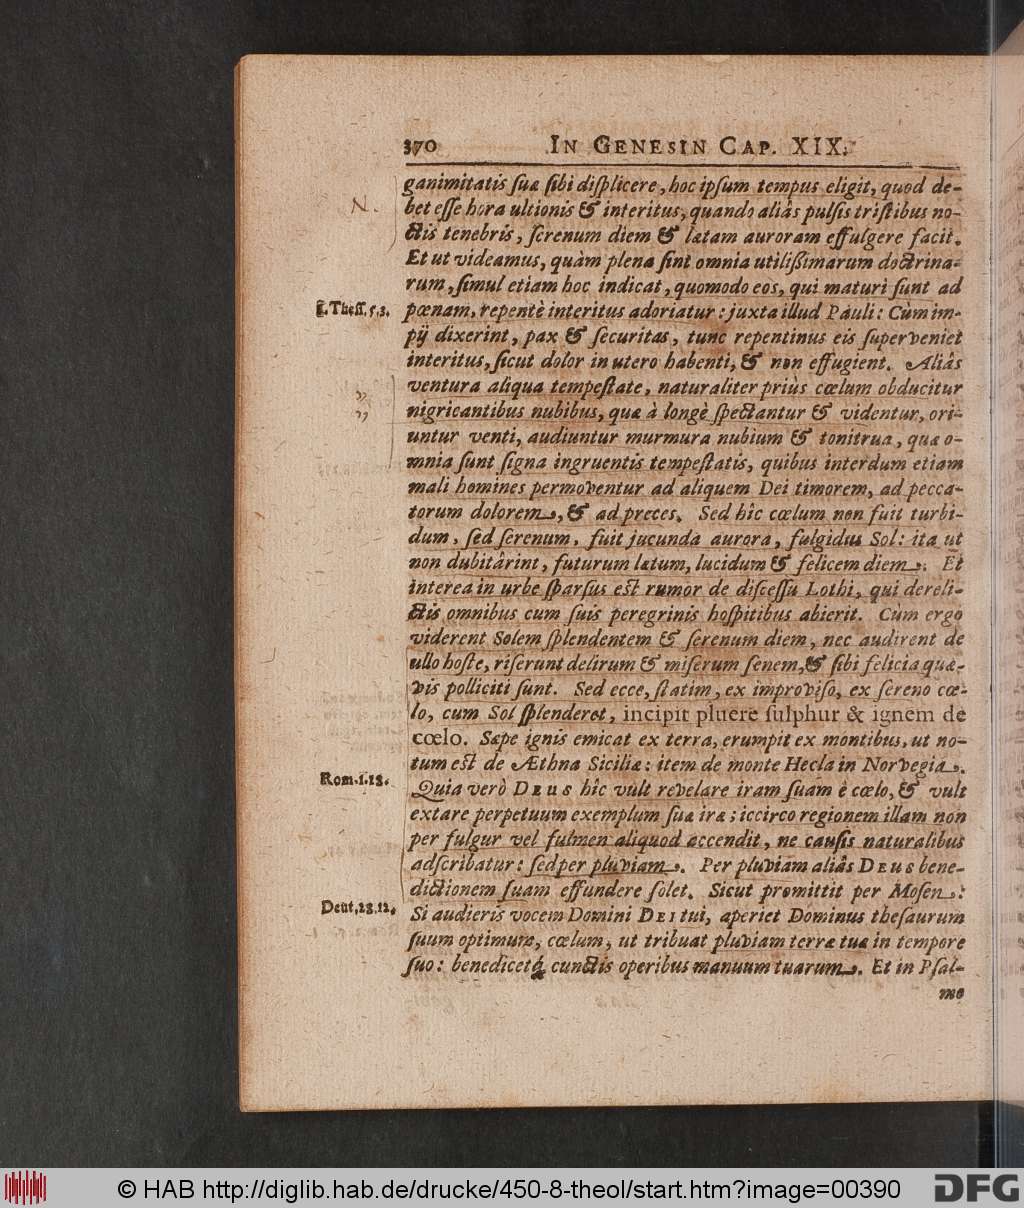 370 IN GENESIN CAP. XIX.
ganimitatis suæ sibi displicere, hoc ipsum tempus eligit, quod de-
N.
bet esse hora ultionis & interitus, quando aliâs pulsis tristibus no-
ctis tenebris, serenum diem & lætam auroram effulgere facit.
Et ut videamus, quàm plena sint omnia utilißimarum doctrina-
rum, simul etiam hoc indicat, quomodo eos, qui maturi sunt ad
1. Thess. 5.3.
pœnam, repentè interitus adoriatur: juxta illud Pauli: Cùm im-
pij dixerint, pax & securitas, tunc repentinus eis superveniet
interitus, sicut dolor in utero habenti, & non effugient. Aliâs
ventura aliqua tempestate, naturaliter priùs cœlum obducitur
"
nigricantibus nubibus, quæ à longè spectantur & videntur, ori-
"
untur venti, audiuntur murmura nubium & tonitrua, quæ o-
mnia sunt signa ingruentis tempestatis, quibus interdum etiam
mali homines permoventur ad aliquem Dei timorem, ad pecca-
torum dolorem, & ad preces. Sed hîc cœlum non fuit turbi-
dum, sed serenum, fuit jucunda aurora, fulgidus Sol: ita ut
non dubitârint, futurum lætum, lucidum & felicem diem. Et
interea in urbe sparsus est rumor de discessu Lothi, qui dereli-
ctis omnibus cum suis peregrinis hospitibus abierit. Cùm ergo
viderent Solem splendentem & serenum diem, nec audirent de
ullo hoste, riserunt delirum & miserum senem, & sibi felicia quæ-
vis polliciti sunt. Sed ecce, statim, ex improviso, ex sereno cœ-
lo, cum Sol splenderet, incipit pluere sulphur & ignem de
cœlo. Sæpe ignis emicat ex terra, erumpit ex montibus, ut no-
tum est de Æthna Siciliæ: item de monte Hecla in Norvegia.
Rom. 1.18.
Quia verò DEUS hîc vult revelare iram suam è cœlo, & vult
extare perpetuum exemplum suæ iræ; iccirco regionem illam non
per fulgur vel fulmen aliquod accendit, ne causis naturalibus
adscribatur: sed per pluviam. Per pluviam aliâs DEUS bene-
dictionem suam effundere solet. Sicut promittit per Mosen:
Deut. 28.12.
Si audieris vocem Domini DEI tui, aperiet Dominus thesaurum
suum optimum, cœlum, ut tribuat pluviam terræ tuæ in tempore
suo: benedicetq́ cunctis operibus manuum tuarum. Et in Psal-
mo
© HAB http://diglib.hab.de/drucke/450-8-theol/start.htm?image=00390
DFG